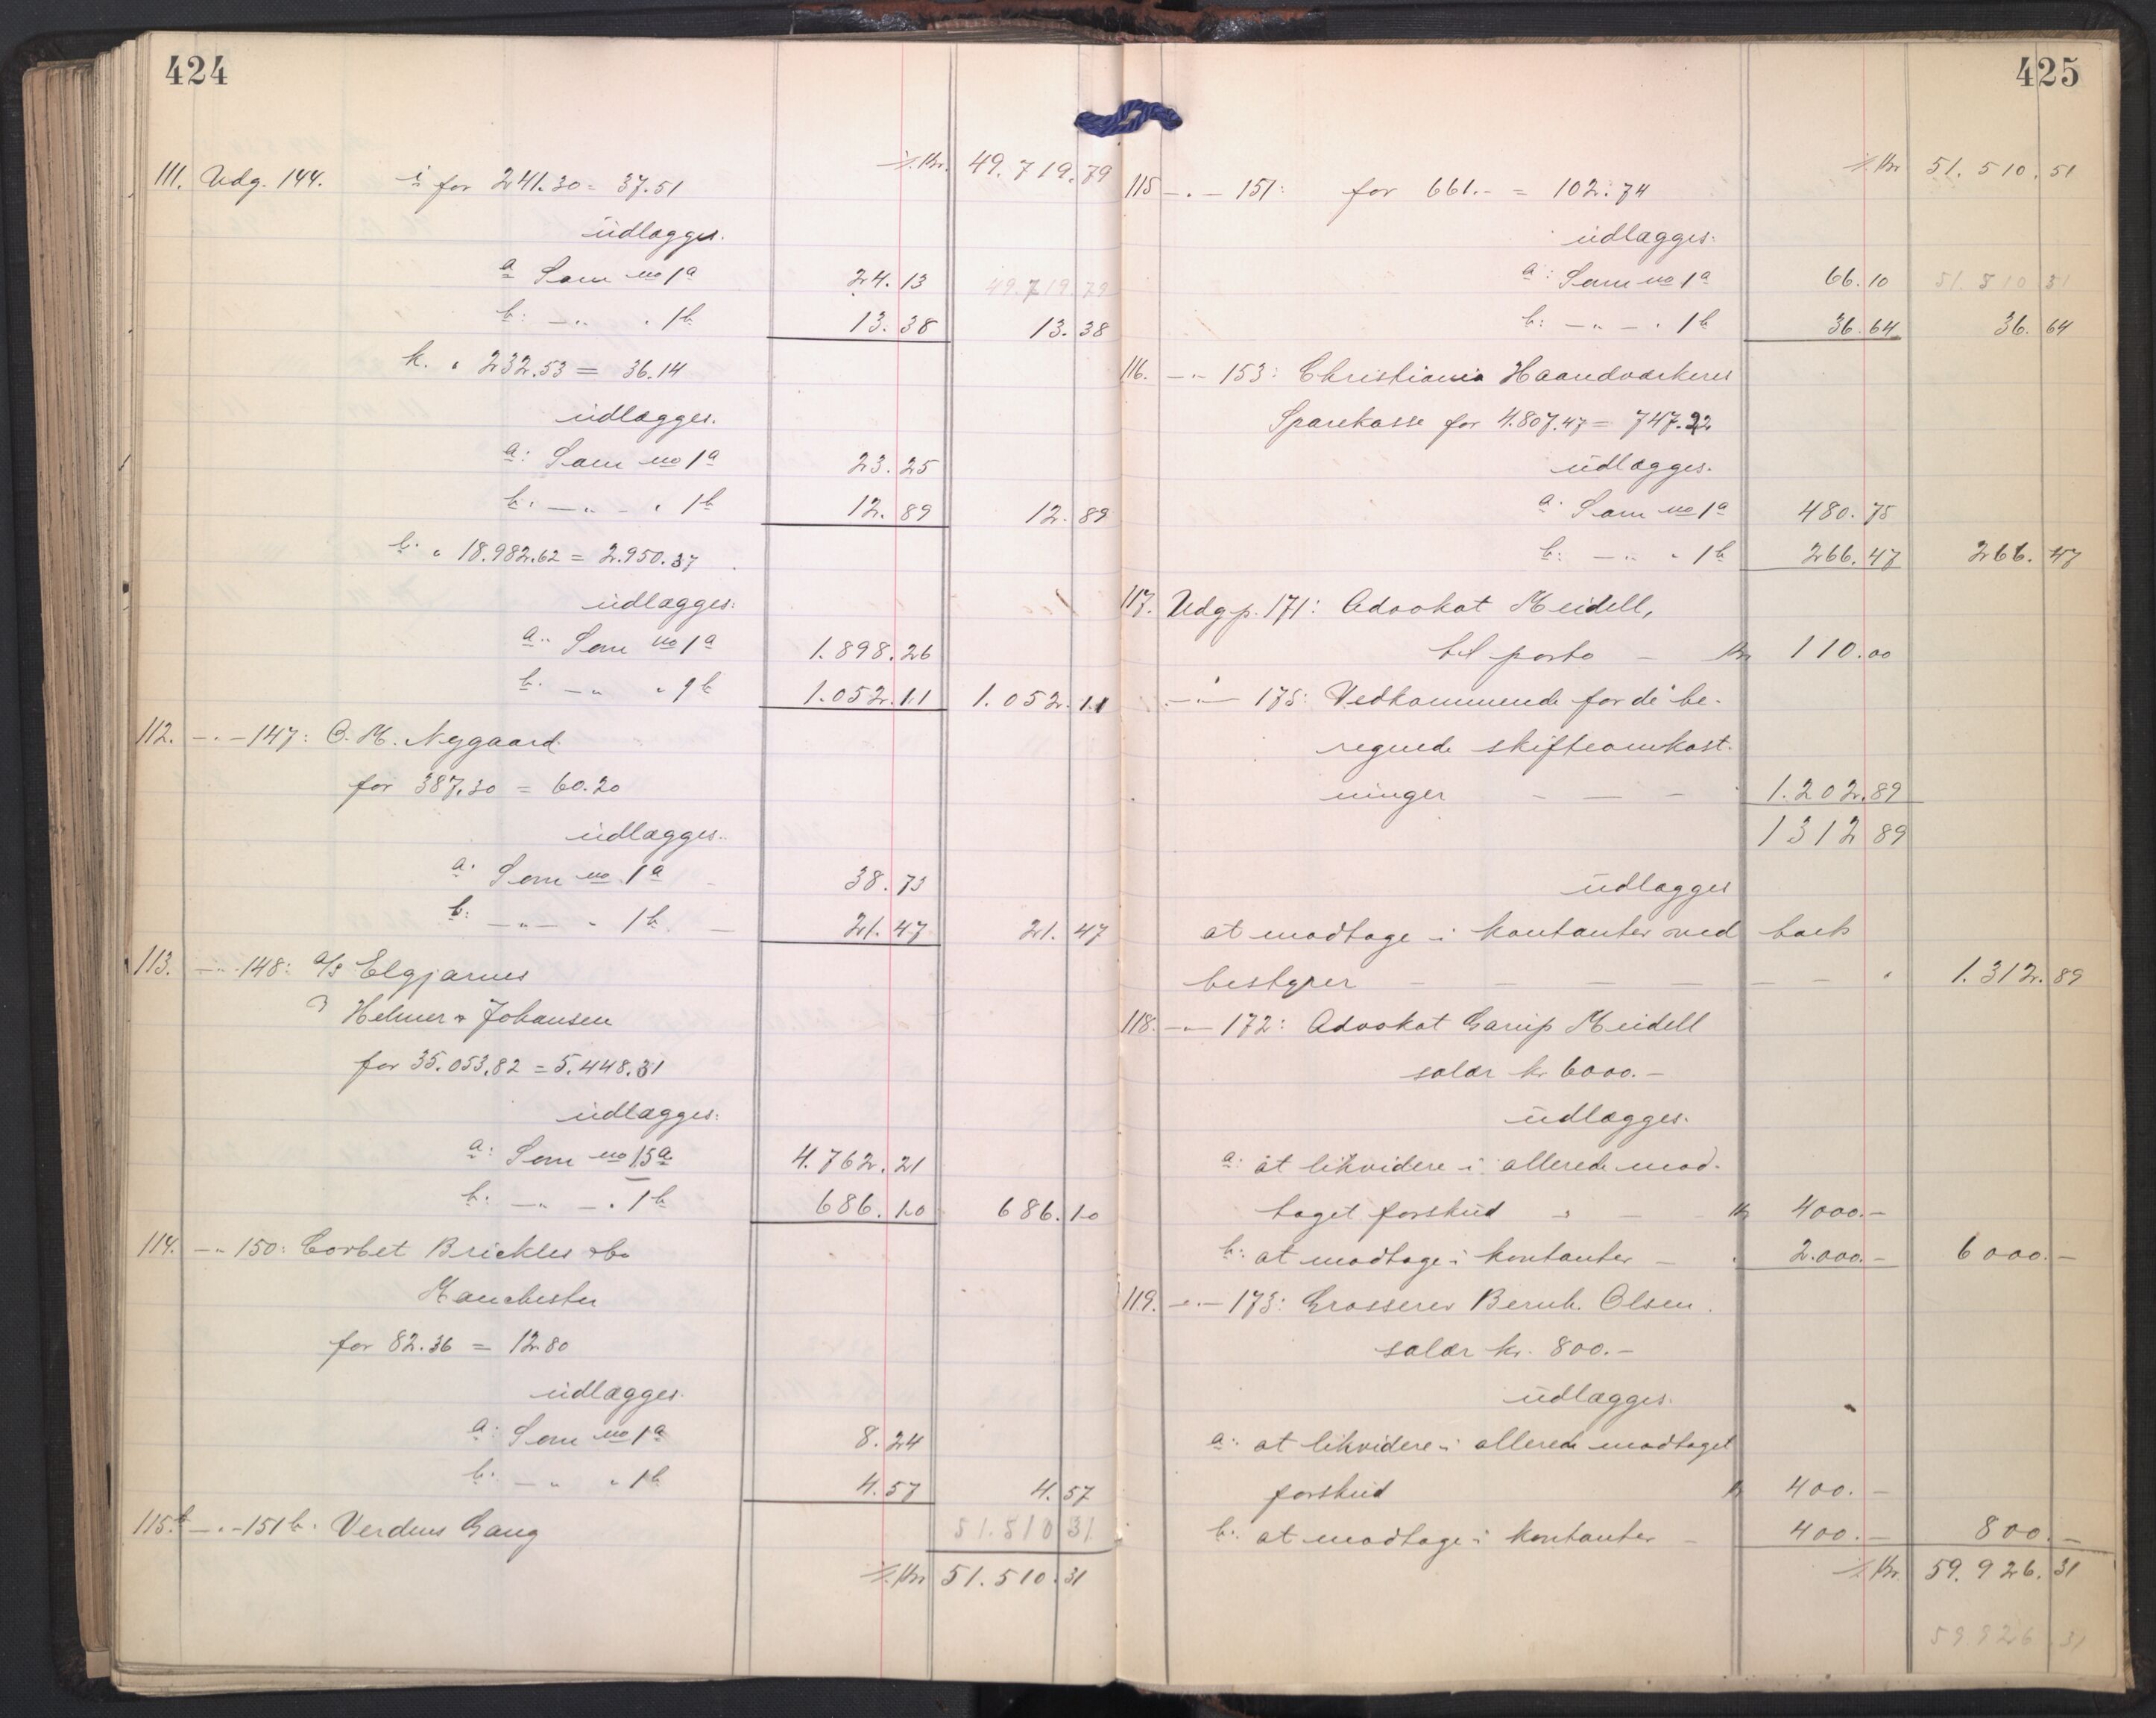 424
⁒ Kr. 49.719.79
111. Udg. 144. i for 241.30 = 37.51
udlægges.
a Som no 1a 24.13 49.719.79
b: — „ „ 1b 13.38 13.38
k. „ 232.53 = 36.14
udlægges.
a: Som no 1a 23.25
b: — „ - „ 1b 12.89 12.89
l. „ 18.982.62 = 2.950.37
udlægges:
a: Som no 1a 1.898.26
b. — „ „ 1b 1.052.11 1.052.11
112. — „ — 147: O. M. Nygaard
for 387.30 = 60.20
udlægges.
a. Som no 1a 38.73
b: — „ — „ 1b 21.47 21.47
113. — „ — 148: A/S Elgjarnes
Helmer & Johansen
for 35.053.82 = 5.448.31
udlægges:
a: Som no 15a 4.762.21
b: — „ — „ 1b 686.10 686.10
114. — „ 150: Corbet Brickles & Co
Manchester
for 82.36 = 12.80
udlægges.
a: Som no 1a 8.24
b. — „ „ 1b 4.57 4.57
115.b — „ — 151b. Verdens Gang 51.510 31
⁒ Kr 51.510.31
425
⁒ Kr 51.510.51
115 — „ — 151: for 661.- = 102.74
udlægges:
a: Som no 1a 66.10 51.510 31
b: — „ — „ 1b 36.64 36.64
116. — „ 153: Christiania Haandværkeres
Sparekasse for 4.807.47 = 747.22
udlægges.
a. Som no 1a 480.75
b: — „ „ 1b 266.47 266.47
117. Udg p. 171: Advokat Meidell,
til porto — Kr 110.00
— „ — 175: Vedkommende for de be-
regnede skifteomkost-
ninger — — — 1.202.89
1312 89
udlægges
at modtage i kontanter ved bo's
bestyrer — — — — — — „ 1.312.89
118. — „ — 172: Advokat Garup Meidell
salær kr 6000.-
udlægges.
a. at likvidere i allerede mod-
taget forskud „ — Kr 4000.-
b: at modtage i kontanter — „ 2.000.- 6000.-
119. — „ — 173: Grosserer Bernh. Olsen.
salær kr. 800.-
udlægges.
a. at likvidere i allerede modtaget
forskud Kr 400.-
b. at modtage i kontanter — 400.- 800.-
⁒ Kr. 59.926.31
59.926.31